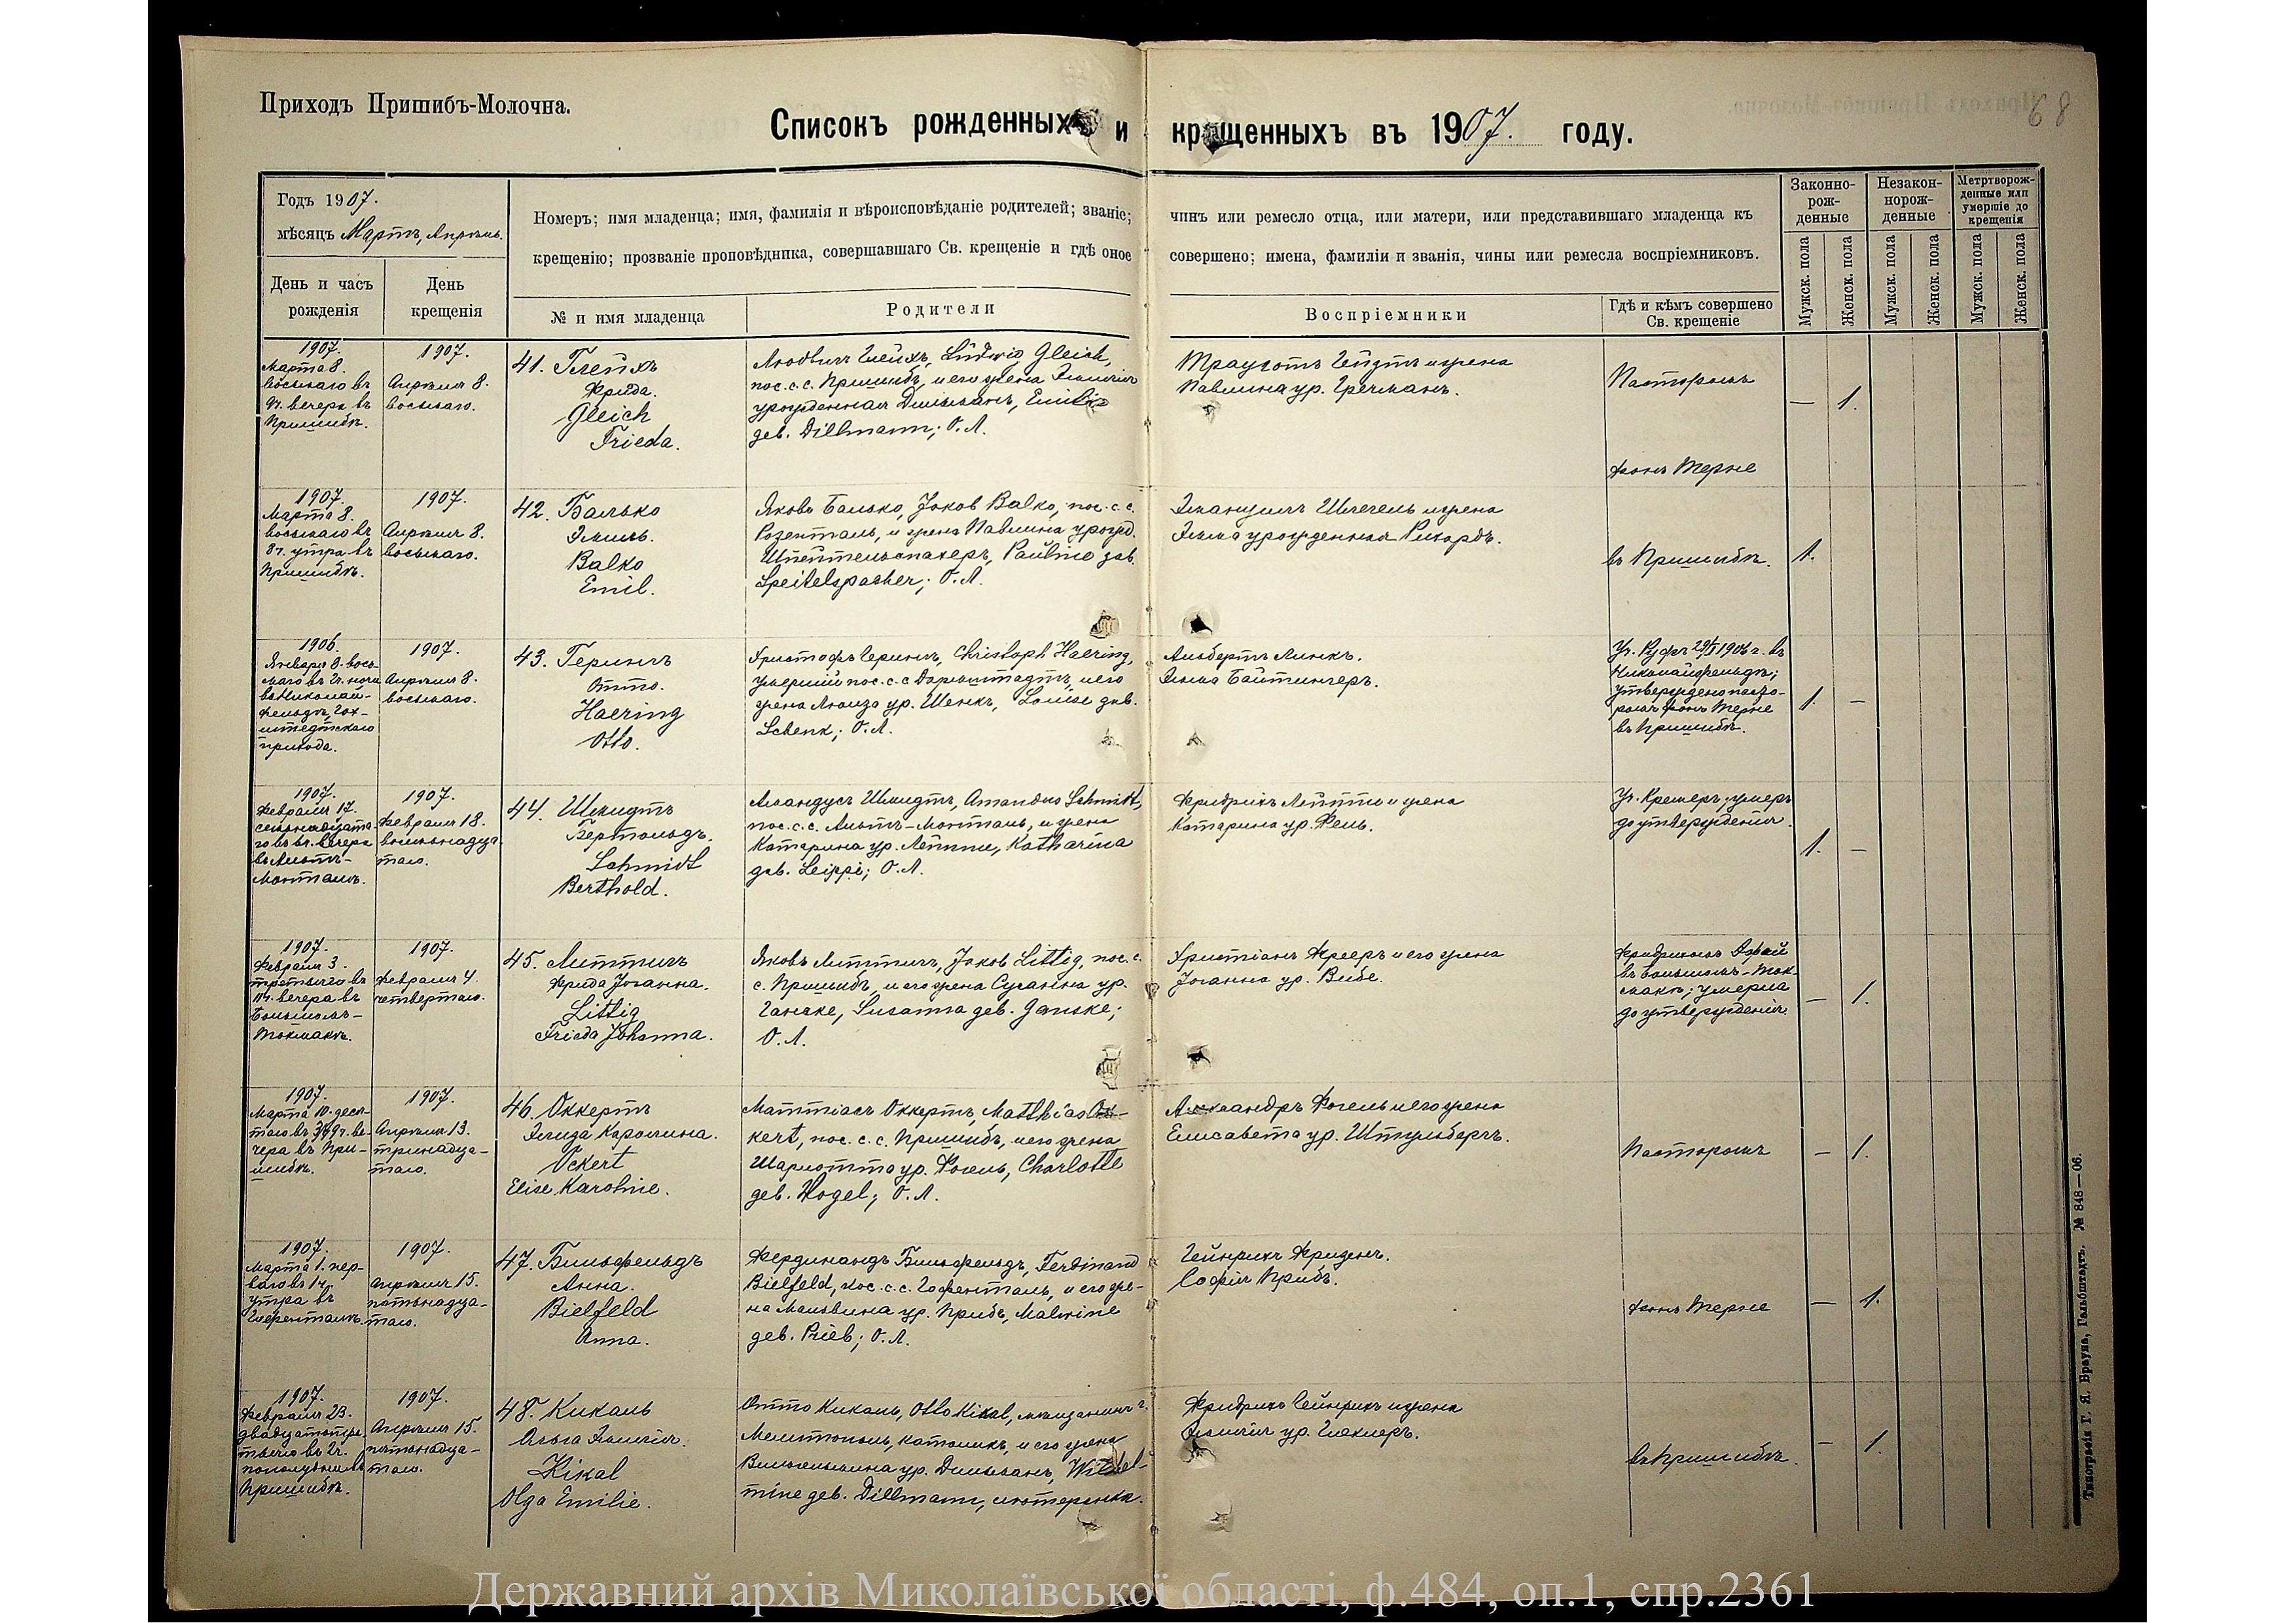 Приходъ Пришибъ-Молочна.
68
Списокъ рожденныхъ и крещенныхъ въ 1907. году.
Годъ 1907.
мѣсяцъ Мартъ, Апрѣль.
День и часъ рожденія
День крещенія
Номеръ; имя младенца; имя, фамилія и вѣроисповѣданіе родителей; званіе; чинъ или ремесло отца, или матери, или представившаго младенца къ
крещенію; прозваніе проповѣдника, совершавшаго Св. крещеніе и гдѣ оное совершено; имена, фамиліи и званія, чины или ремесла воспріемниковъ.
№ и имя младенца
Родители
Воспріемники
Гдѣ и кѣмъ совершено
Св. крещеніе
Законно-
рож-
денные
Незакон-
норож-
денные
Метрворож-
денные или
умершіе до
крещенія
Мужск. пола
Женск. пола
Мужск. пола
Женск. пола
Мужск. пола
Женск. пола
1907.
Марта 8.
восьмаго въ
9ч. вечера въ
Пришибѣ.
1907.
Апрѣля 8.
восьмаго.
41. Глейхъ
Фрида.
Gleich
Frieda.
Людвигъ Глейхъ, Ludwig Gleich,
пос. с. с. Пришибъ, и его жена Эмилія
урожденная Дильманъ, Emilie
geb. Dillmann; О. Л.
Трауготъ Гейдтъ и жена
Павлина ур. Гречманъ.
Пасторомъ
фонъ Терне
— 1.
1907.
Марта 8.
восьмаго въ
8ч. утра въ
Пришибѣ.
1907.
Апрѣля 8.
восьмаго.
42. Балько
Эмиль.
Balko
Emil.
Яковъ Балько, Jakob Balko, пос. с. с.
Розенталь, и жена Павлина урожд.
Шпейтельспахеръ, Pauline geb.
Speitelspacher; О. Л.
Эмануилъ Шлегель и жена
Эмма урожденная Рихардъ.
въ Пришибѣ.
1.
1906.
Января 8. вось-
маго въ 2ч. ночи
въ Николай-
фельдѣ, Гох-
штедтскаго
прихода.
1907.
Апрѣля 8.
восьмаго.
43. Герингъ
Отто.
Haering
Otto.
Христофъ Герингъ, Christoph Haering,
умершій пос. с. с. Дармштадтъ, и его
жена Луиза ур. Шенкъ, Louise geb.
Schenk; О. Л.
Альбертъ Линкъ.
Эмма Байтингеръ.
1906 г. въ
Николайфельдѣ;
утверждено пасто-
ромъ фонъ Терне
въ Пришибѣ.
1. —
1907.
Февраля 17.
семнадцата-
го въ 8ч. вечера
въ Альтъ-
Монталѣ.
1907.
Февраля 18.
восемнадца-
таго.
44. Шмидтъ
Бертольдъ.
Schmidt
Berthold.
Амандусъ Шмидтъ, Amandus Schmidt,
пос. с. с. Альтъ-Монталь, и жена
Катарина ур. Лейппи, Katharina
geb. Leippi; О. Л.
Фридрихъ Лейппи и жена
Катарина ур. Фель.
Уч. Кремеръ; умеръ
до утвержденія.
1. —
1907.
Февраля 3.
третьяго въ
11ч. вечера въ
Большомъ-
Токмакѣ.
1907.
Февраля 4.
четвертаго.
45. Литтигъ
Фрида Іоганна.
Littig
Frieda Johanna.
Яковъ Литтигъ, Jakob Littig, пос. с.
с. Пришибъ, и его жена Сусанна ур.
Ганске, Susanna geb. Ganske;
О. Л.
Христіанъ Фрееръ и его жена
Іоганна ур. Вибе.
Фридрихомъ
въ Большомъ-Ток-
макѣ; умерла
до утвержденія.
— 1.
1907.
Марта 10. деся-
таго въ 9ч. ве-
чера въ При-
шибѣ.
1907.
Апрѣля 13.
тринадца-
таго.
46. Оккертъ
Элиза Каролина.
Ockert
Elise Karoline.
Маттіасъ Оккертъ, Matthias Ok-
kert, пос. с. с. Пришибъ, и его жена
Шарлотта ур. Фогель, Charlotte
geb. Vogel; О. Л.
Александръ Фогель и его жена
Елисавета ур. Штульбергъ.
Пасторомъ
— 1.
1907.
Марта 1. пер-
ваго въ 1ч.
утра въ
1907.
Апрѣля 15.
пятнадца-
таго.
47. Бильфельдъ
Анна.
Bielfeld
Anna.
Фердинандъ Бильфельдъ, Ferdinand
Bielfeld, пос. с. с. Гофенталь, и его же-
на Мальвина ур. Прибъ, Malwine
geb. Prieb; О. Л.
Гейнрихъ Фризенъ.
Софія Прибъ.
фонъ Терне
— 1.
1907.
Февраля 23.
двадцатотре-
тьяго въ 2ч.
пополудни въ
Пришибѣ.
1907.
Апрѣля 15.
пятнадца-
таго.
48. Кикаль
Ольга Эмилія.
Kikal
Olga Emilie.
Отто Кикаль, Otto Kikal, мѣщанинъ г.
Мелитополь, католикъ, и его жена
Вильгельмина ур. Дильманъ, Wilhel-
mine geb. Dillmann, лютеранка.
Фридрихъ Гейнрихъ и жена
Эмилія ур. Гехлеръ.
въ Пришибѣ.
— 1.
Типографія Г. Я. Брауна, Гальбштадтъ. № 848—06.
Державний архів Миколаївської області, ф.484, оп.1, спр.2361